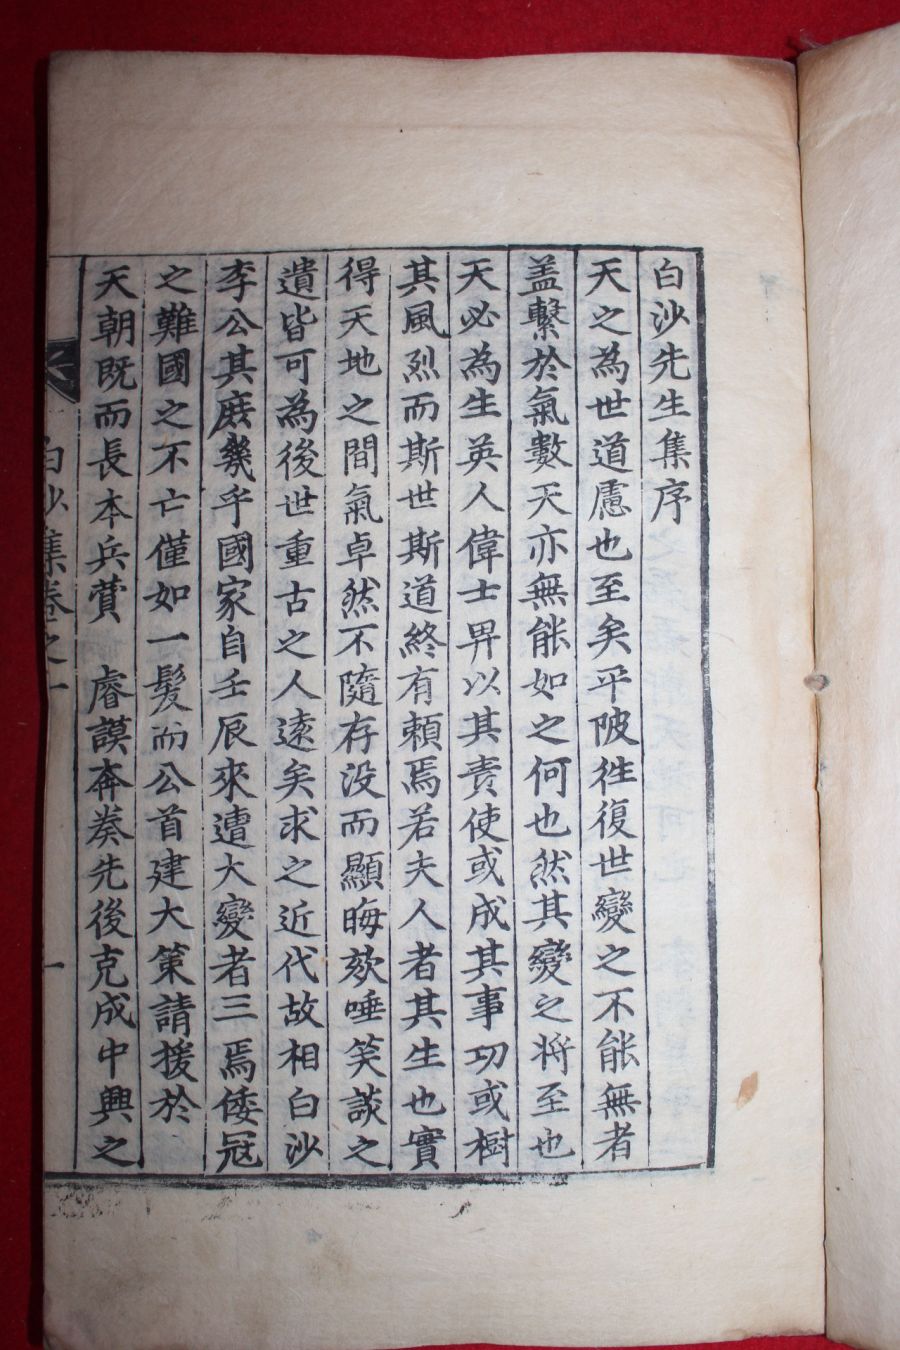 白沙先生集序
天之為世道慮也至矣平陂徃復世變之不能無者
盖繫於氣數天亦無能如之何也然其變之將至也
天必為生英人偉士畀以其責使或成其事功或樹
其風烈而斯世斯道終有頼焉若夫人者其生也實
得天地之間氣卓然不隨存没而顯晦欬唾笑談之
遺皆可為後世重古之人遠矣求之近代故相白沙
李公其庶幾乎國家自壬辰來遭大變者三焉倭冦
之難國之不亡僅如一髮而公首建大策請援於
天朝既而長本兵賛 睿謨奔奏先後克成中興之
白沙集卷之一
一